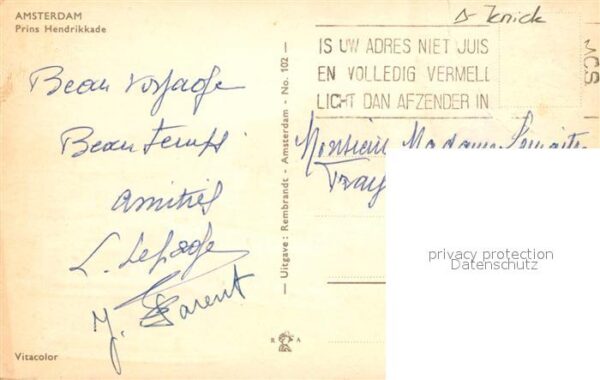 AMSTERDAM
Prins Hendrikkade
IS UW ADRES NIET JUIS
EN VOLLEDIG VERMEL
LICHT DAN AFZENDER IN
Beau voyage
Beau temps
Amitiés
L. Lepage
J. Parent
Monsieur Madame Lemaitre
Uitgave: Rembrandt - Amsterdam - No. 102
privacy protection
Datenschutz
R A
Vitacolor